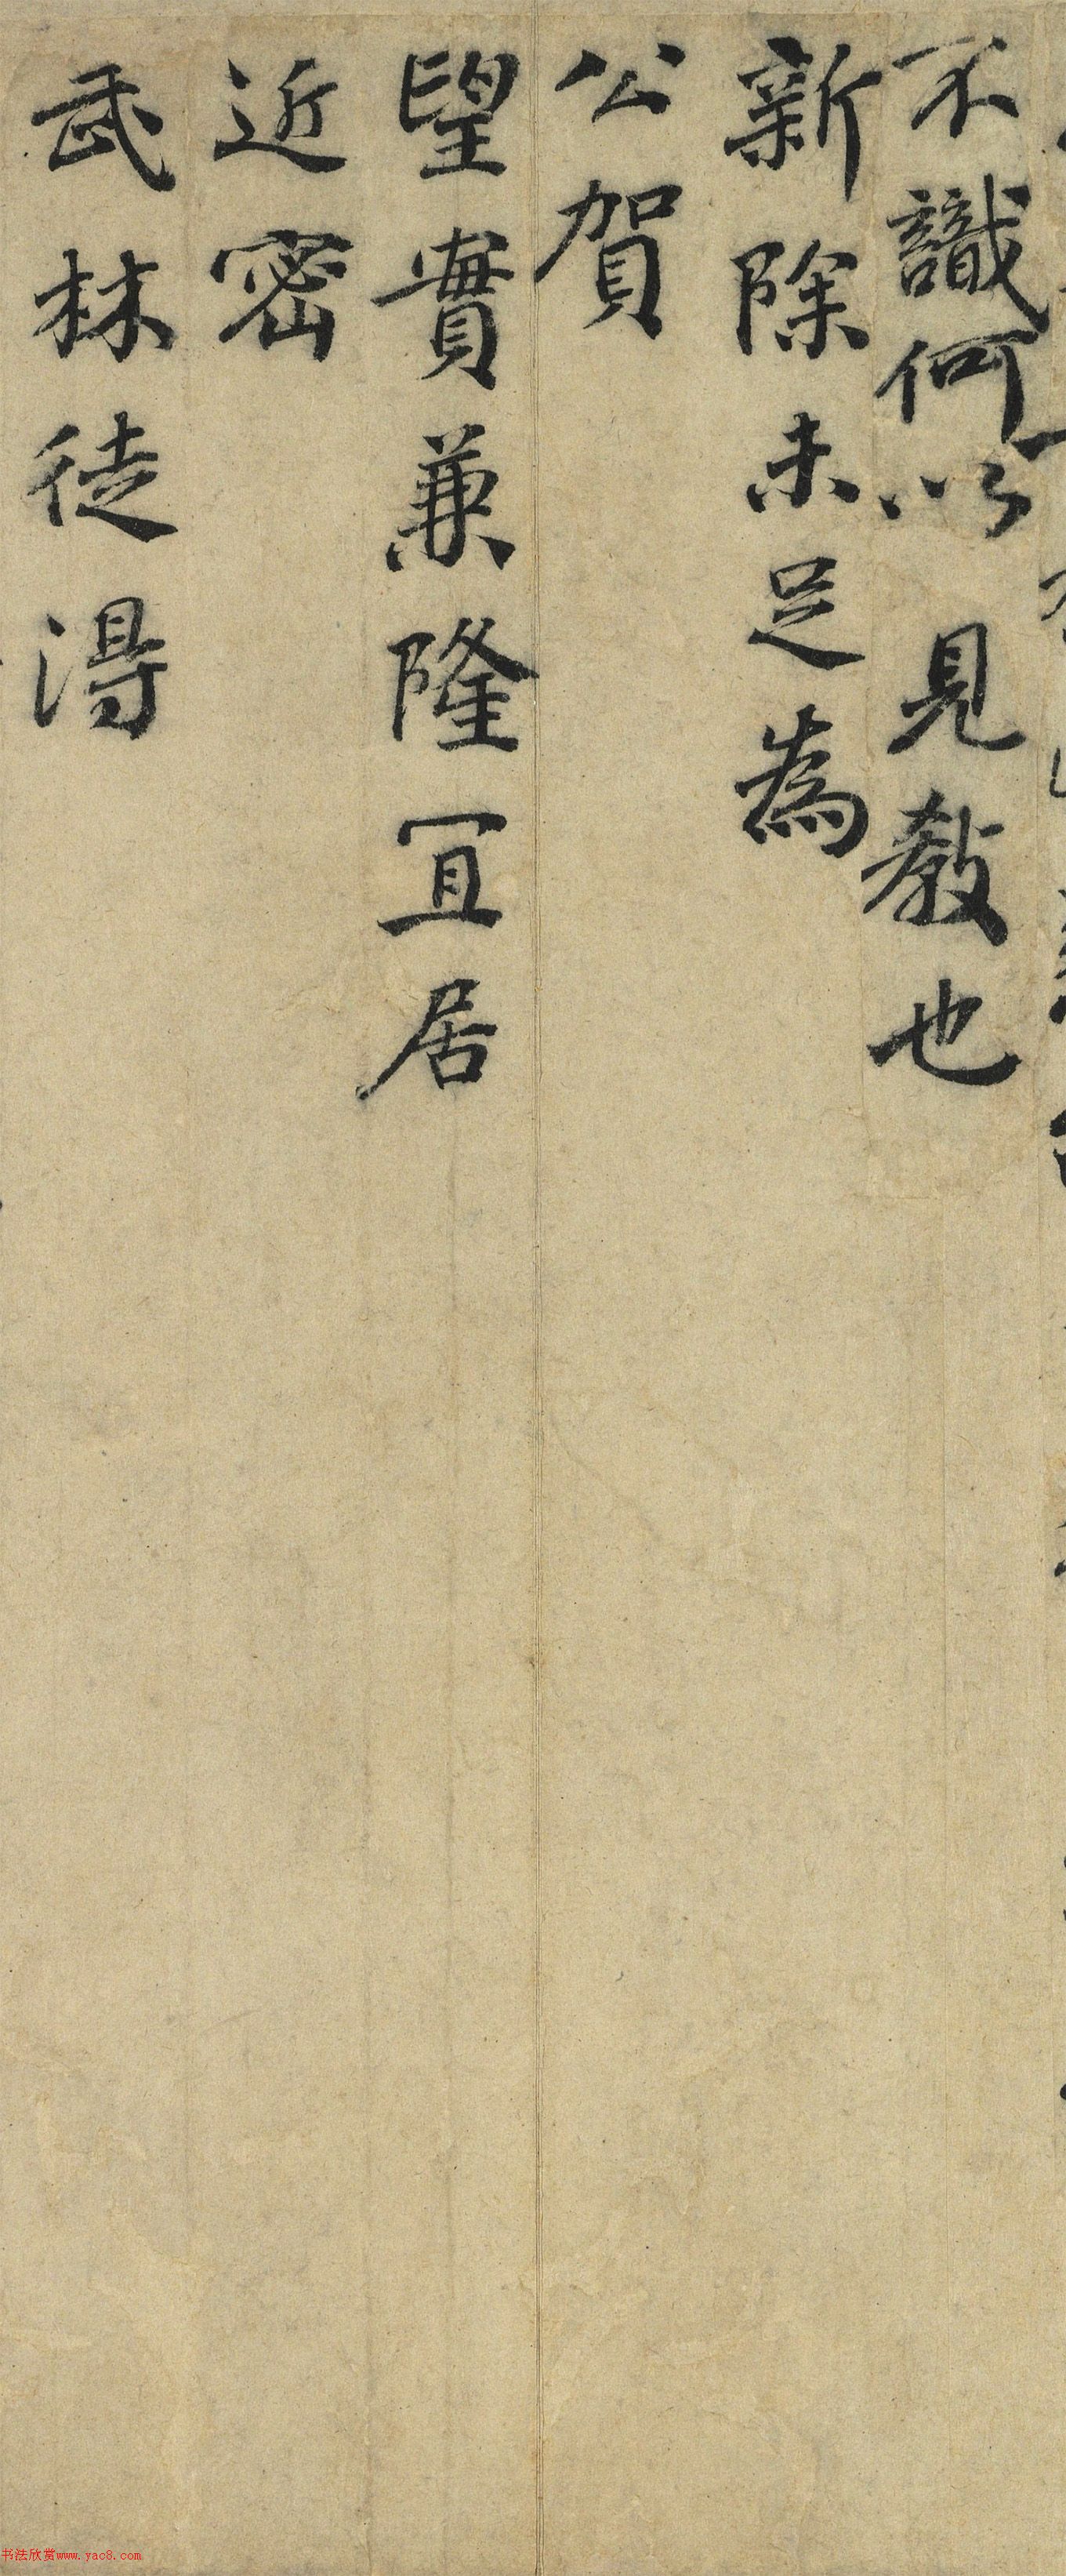 不識何以見教也
新除未足為
公賀
望實兼隆宜居
近密
武林徒得
书法欣赏www.yac8.com